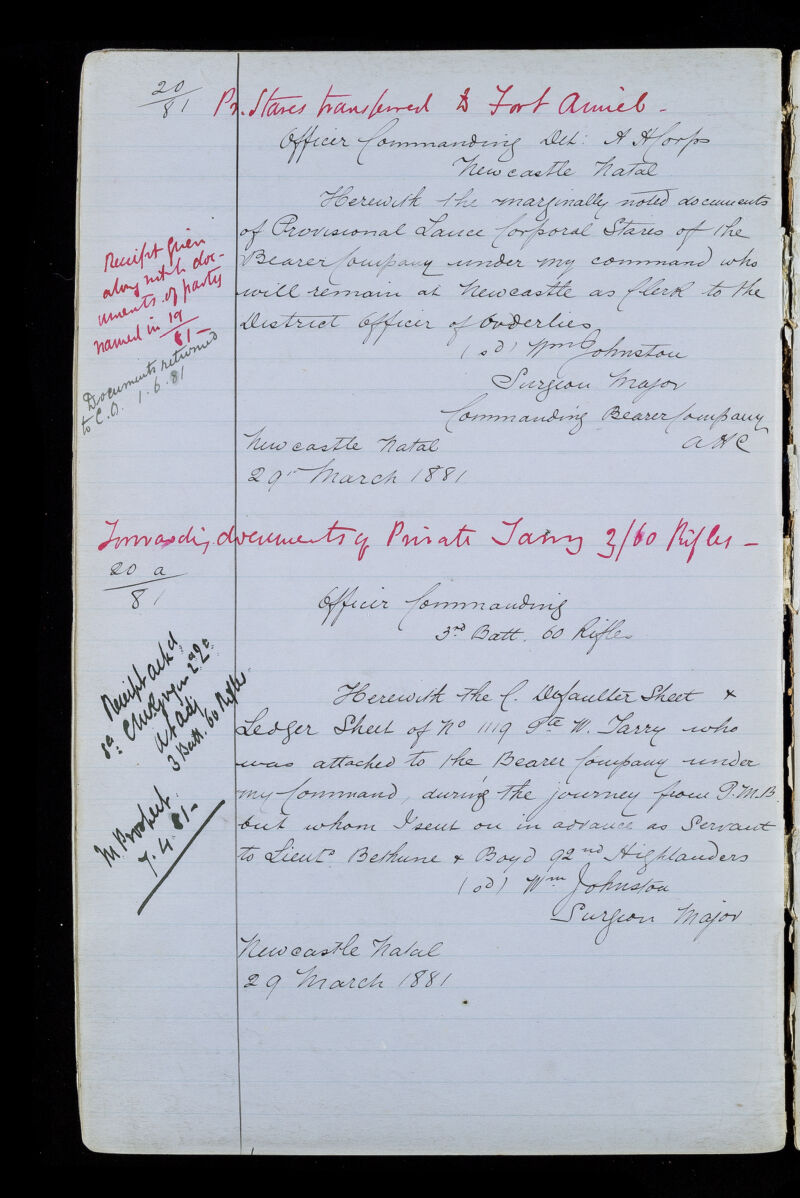 20/81 Pr. Stares transferred to Fort Amiel -
Officer Commanding Det: A H Corps
Newcastle Natal
Herewith the marginally noted documents
of Provisional Lance Corporal Stares of the
Bearer Company under my command who
will remain at Newcastle as Clerk to the
District Officer of Orderlies
(sd) Wm Johnston
Surgeon Major
Commanding Bearer Company
A H C
Newcastle Natal
29th March 1881
Receipt given
along with doc-
uments of party
named in 19/81 -
Documents returned
to C.O. 1.6.81
Forwarding documents of Private Tarry 3/60 Rifles -
20 a/81
Officer Commanding
3rd Batt. 60 Rifles
Herewith the C. Defaulter Sheet &
Ledger Sheet of No 1119 Pte W. Tarry who
was attached to the Bearer Company under
my Command, during the journey from P.M.B.
but whom I sent on in advance as Servant
to Lieuts Bethune & Boyd 92nd Highlanders
(sd) Wm Johnston
Surgeon Major
Newcastle Natal
29 March 1881
Receipt
3 Batt. 60 Rifles
Mt Prospect.
7.4.81 -